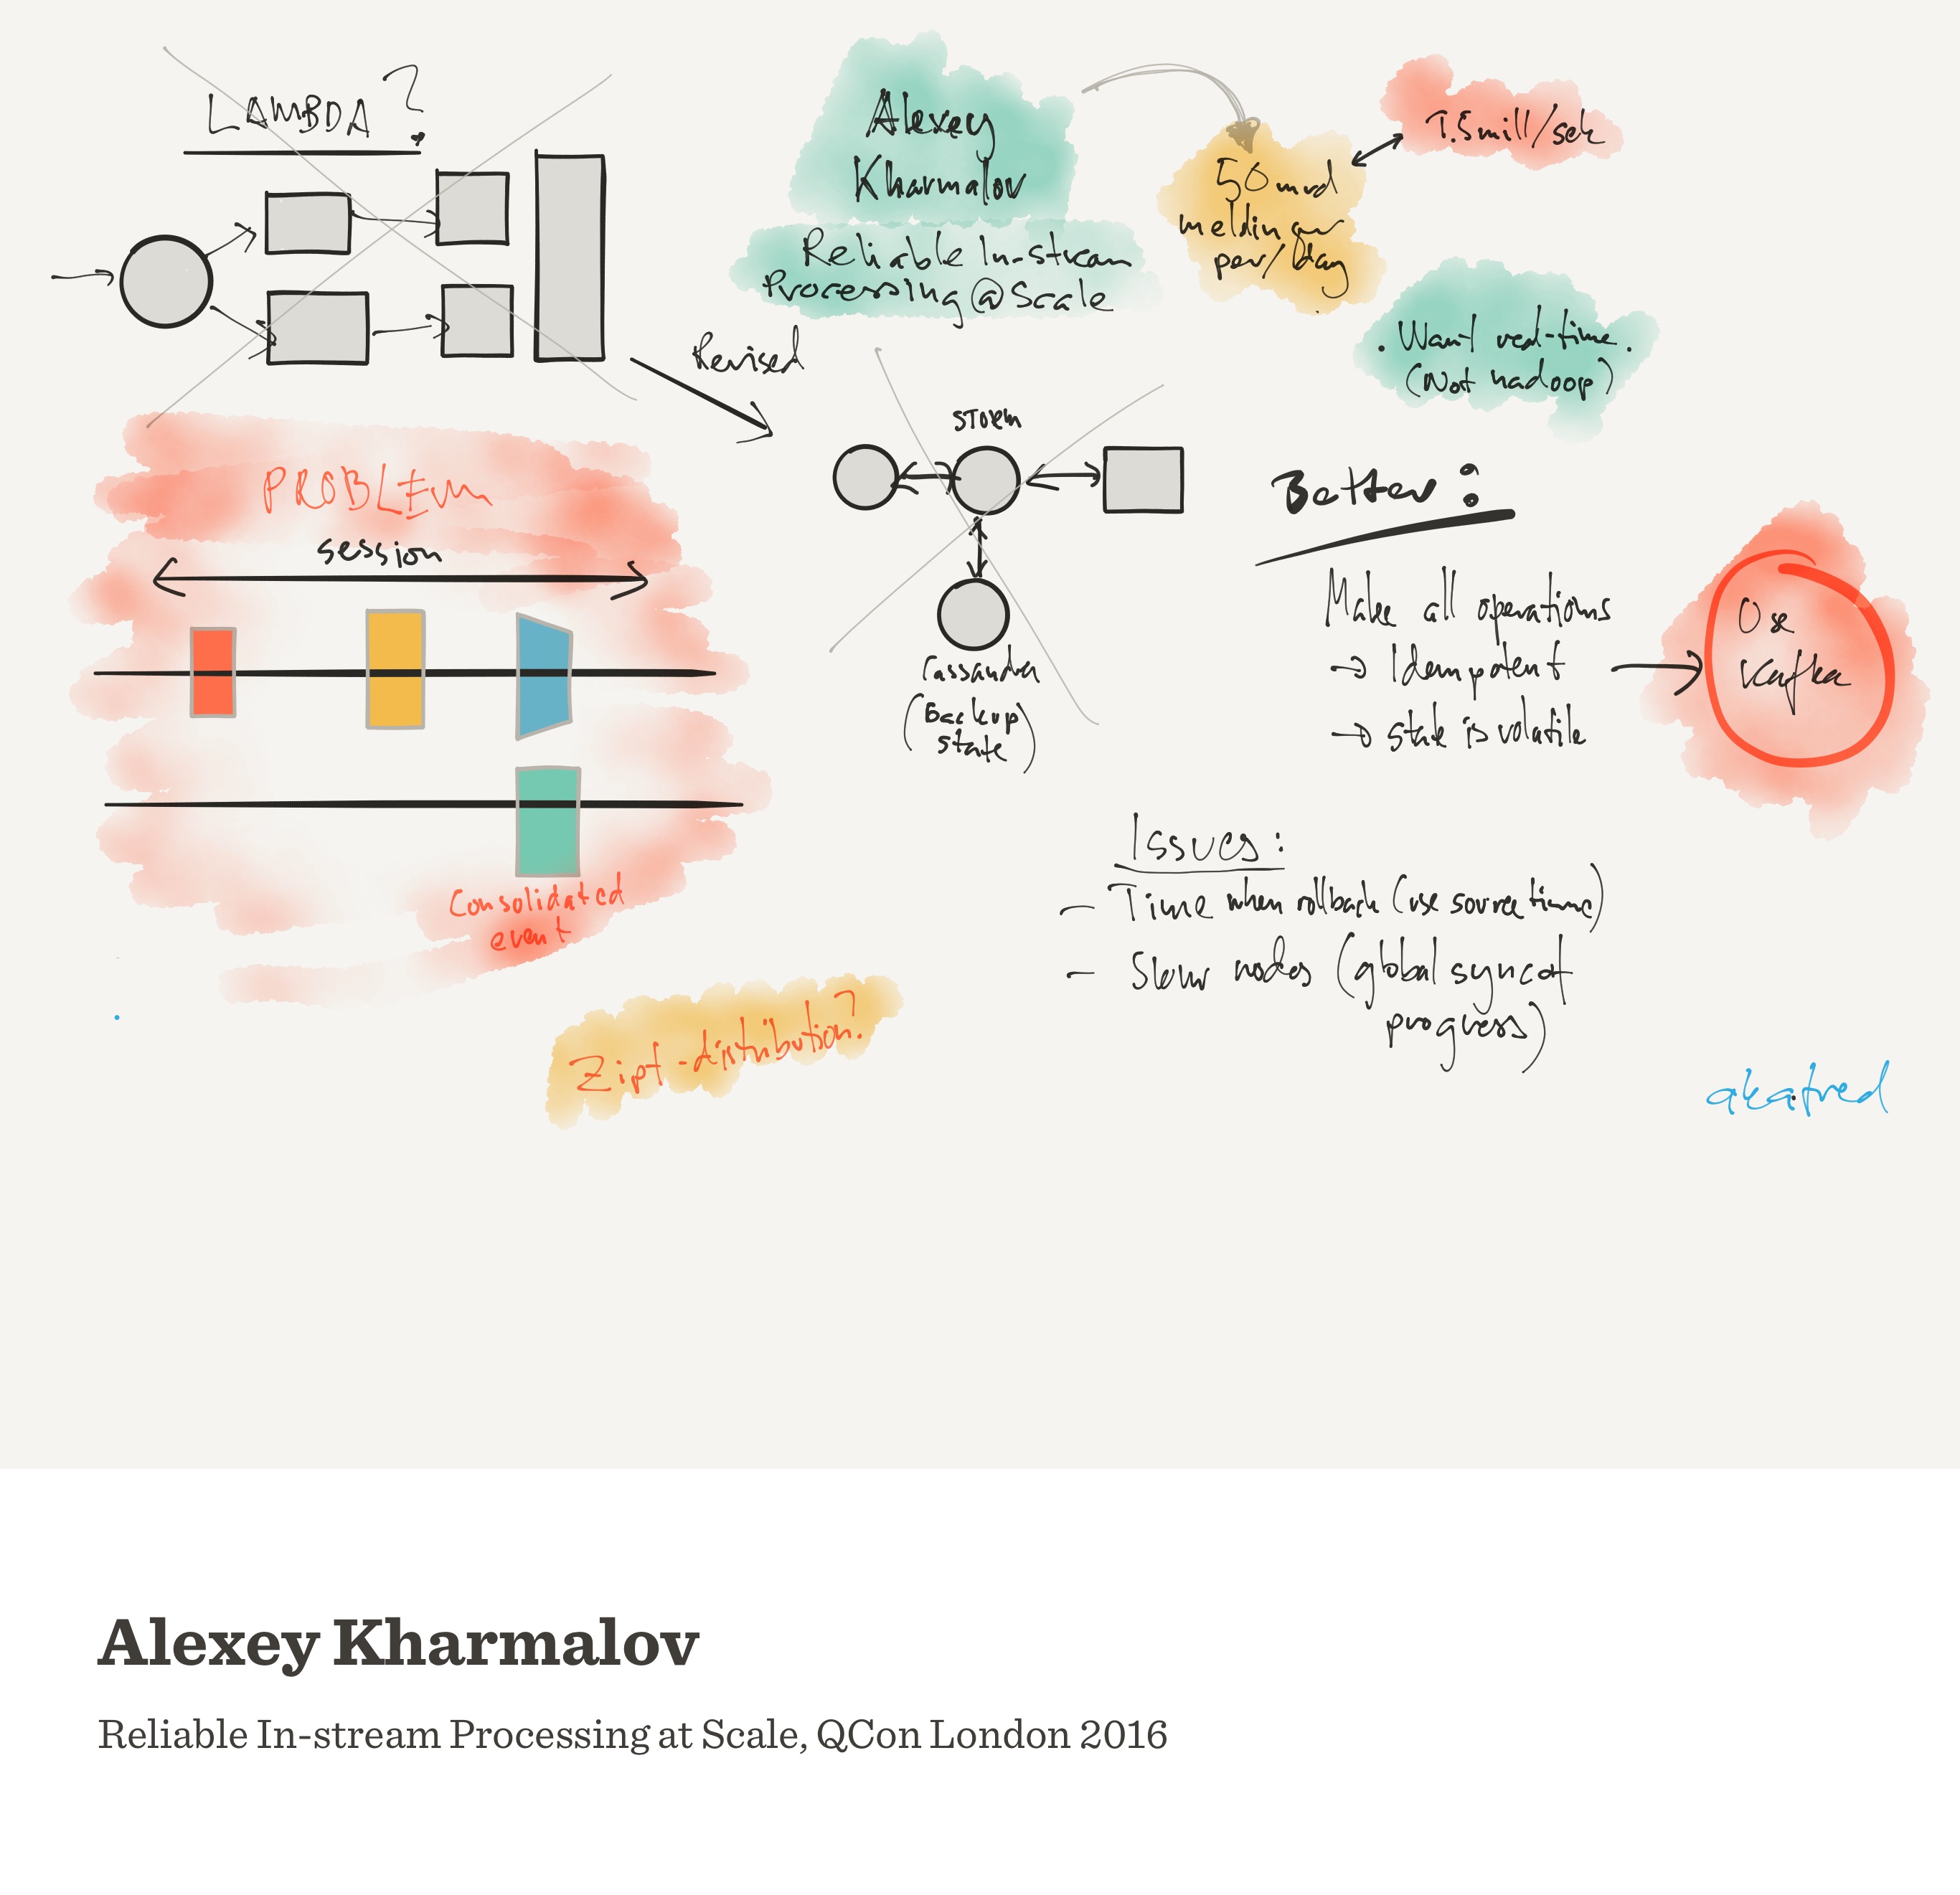 LAMBDA?
Alexey
Kharmalov
Reliable In-stream
Processing @ Scale
50 mrd
meldinger
per/dag
1.5mill/sek
. Want real-time.
(Not hadoop)
Revised
PROBLEM
session
Consolidated
event
STORM
Cassandra
(Backup
state)
Better:
Make all operations
→ Idempotent
→ state is volatile
Use
Kafka
Issues:
- Time when rollback (use source time)
- Slow nodes (global sync of
progress)
Zipf-distribution?
Alexey Kharmalov
Reliable In-stream Processing at Scale, QCon London 2016